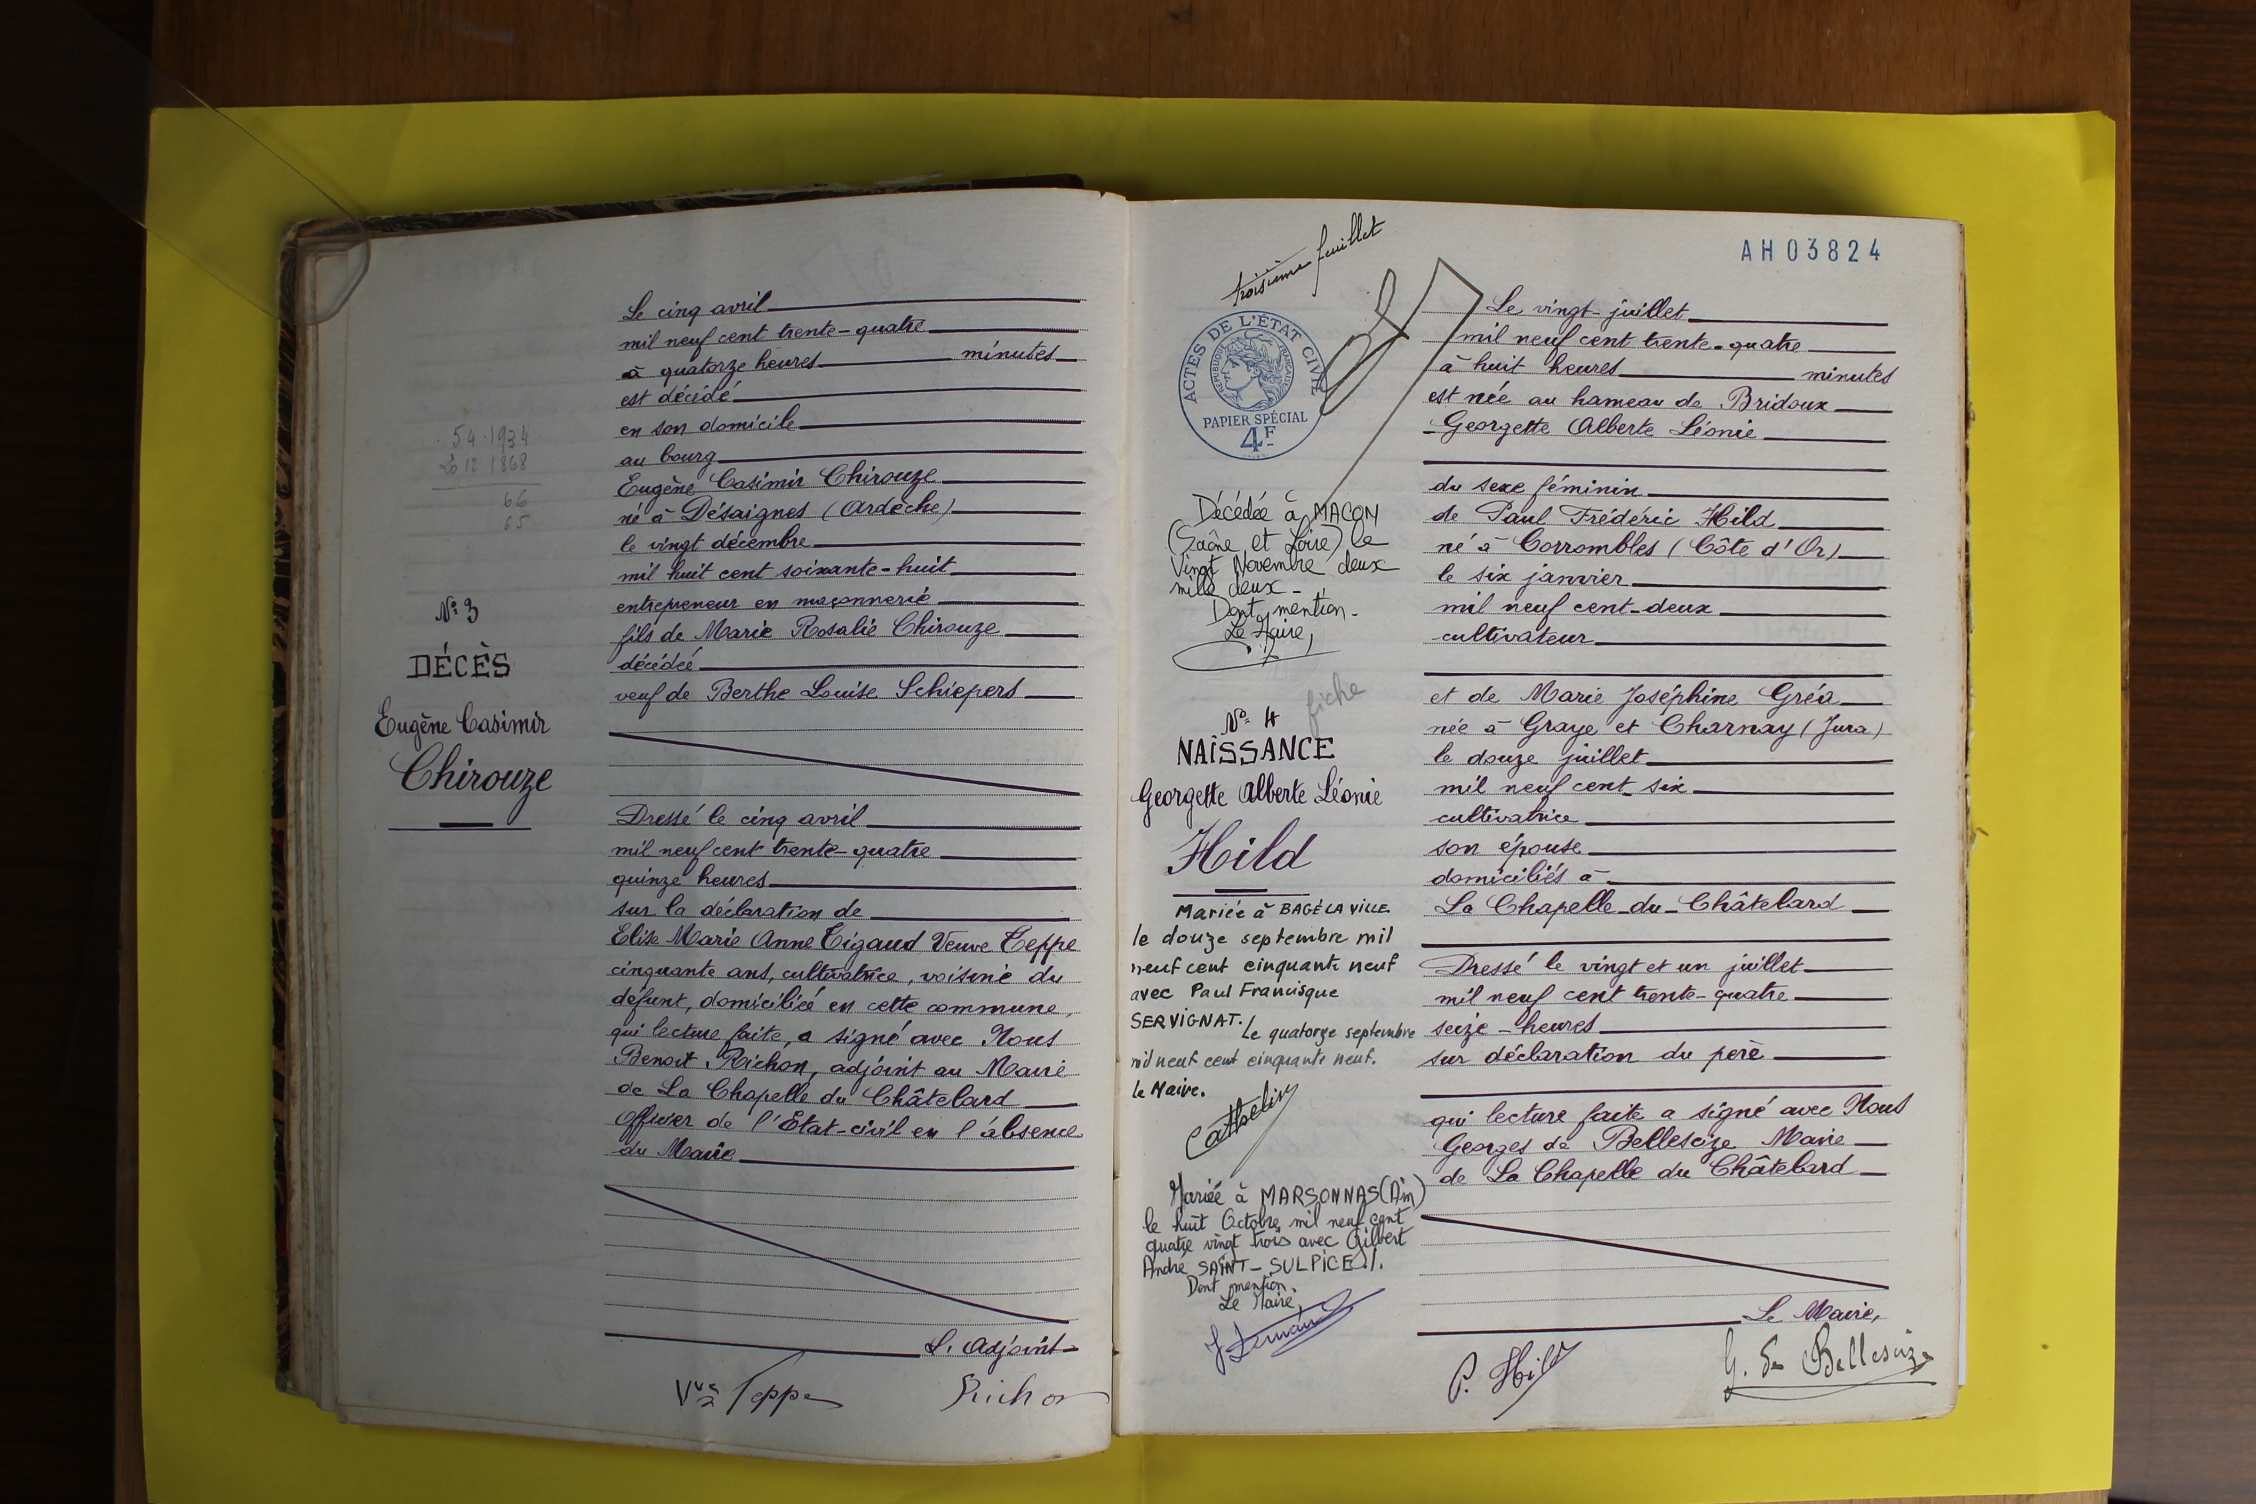 5 4 1934
20 12 1868
66
65
N° 3
DÉCÈS
Eugène Casimir
Chirouze
Le cinq avril
mil neuf cent trente-quatre
à quatorze heures minutes
est décédé
en son domicile
au bourg
Eugène Casimir Chirouze
né à Désaignes (Ardèche)
le vingt décembre
mil huit cent soixante-huit
entrepreneur en maçonnerie
fils de Marie Rosalie Chirouze
décédée
veuf de Berthe Louise Schiepers
Dressé le cinq avril
mil neuf cent trente-quatre
quinze heures
sur la déclaration de
Elise Marie Anne Tigaud Veuve Teppe
cinquante ans, cultivatrice, voisine du
défunt, domiciliée en cette commune,
qui lecture faite, a signé avec Nous
Benoit Richon, adjoint au Maire
de La Chapelle du Châtelard
Officier de l'Etat-civil en l'absence
du Maire
L'Adjoint
Vve Teppe
Richon
troisième feuillet
AH03824
ACTES DE L'ÉTAT CIVIL
RÉPUBLIQUE FRANÇAISE
PAPIER SPÉCIAL
4F
Décédée à MACON
(Saône et Loire) le
Vingt Novembre deux
mille deux -
Dont mention.
Le Maire,
fiche
N° 4
NAISSANCE
Georgette Alberte Léonie
Hild
Mariée à BAGÉ LA VILLE
le douze septembre mil
neuf cent cinquante neuf
avec Paul Francisque
SERVIGNAT. Le quatorze septembre
mil neuf cent cinquante neuf.
le Maire.
Cathelin
Mariée à MARSONNAS (Ain)
le huit Octobre mil neuf cent
quatre vingt trois avec Gilbert
André SAINT-SULPICE ./.
Dont mention.
Le Maire,
Le vingt-juillet
mil neuf cent trente-quatre
à huit heures minutes
est née au hameau de Bridoux
Georgette Alberte Léonie
du sexe féminin
de Paul Frédéric Hild
né à Corrombles (Côte d'Or)
le six janvier
mil neuf cent-deux
cultivateur
et de Marie Joséphine Gréa
née à Graye et Charnay (Jura)
le douze juillet
mil neuf cent-six
cultivatrice
son épouse
domiciliés à
La Chapelle-du-Châtelard
Dressé le vingt et un juillet
mil neuf cent trente-quatre
seize-heures
sur déclaration du père
qui lecture faite a signé avec Nous
Georges de Bellescize Maire
de La Chapelle du Châtelard
Le Maire,
P. Hild
G. de Bellescize